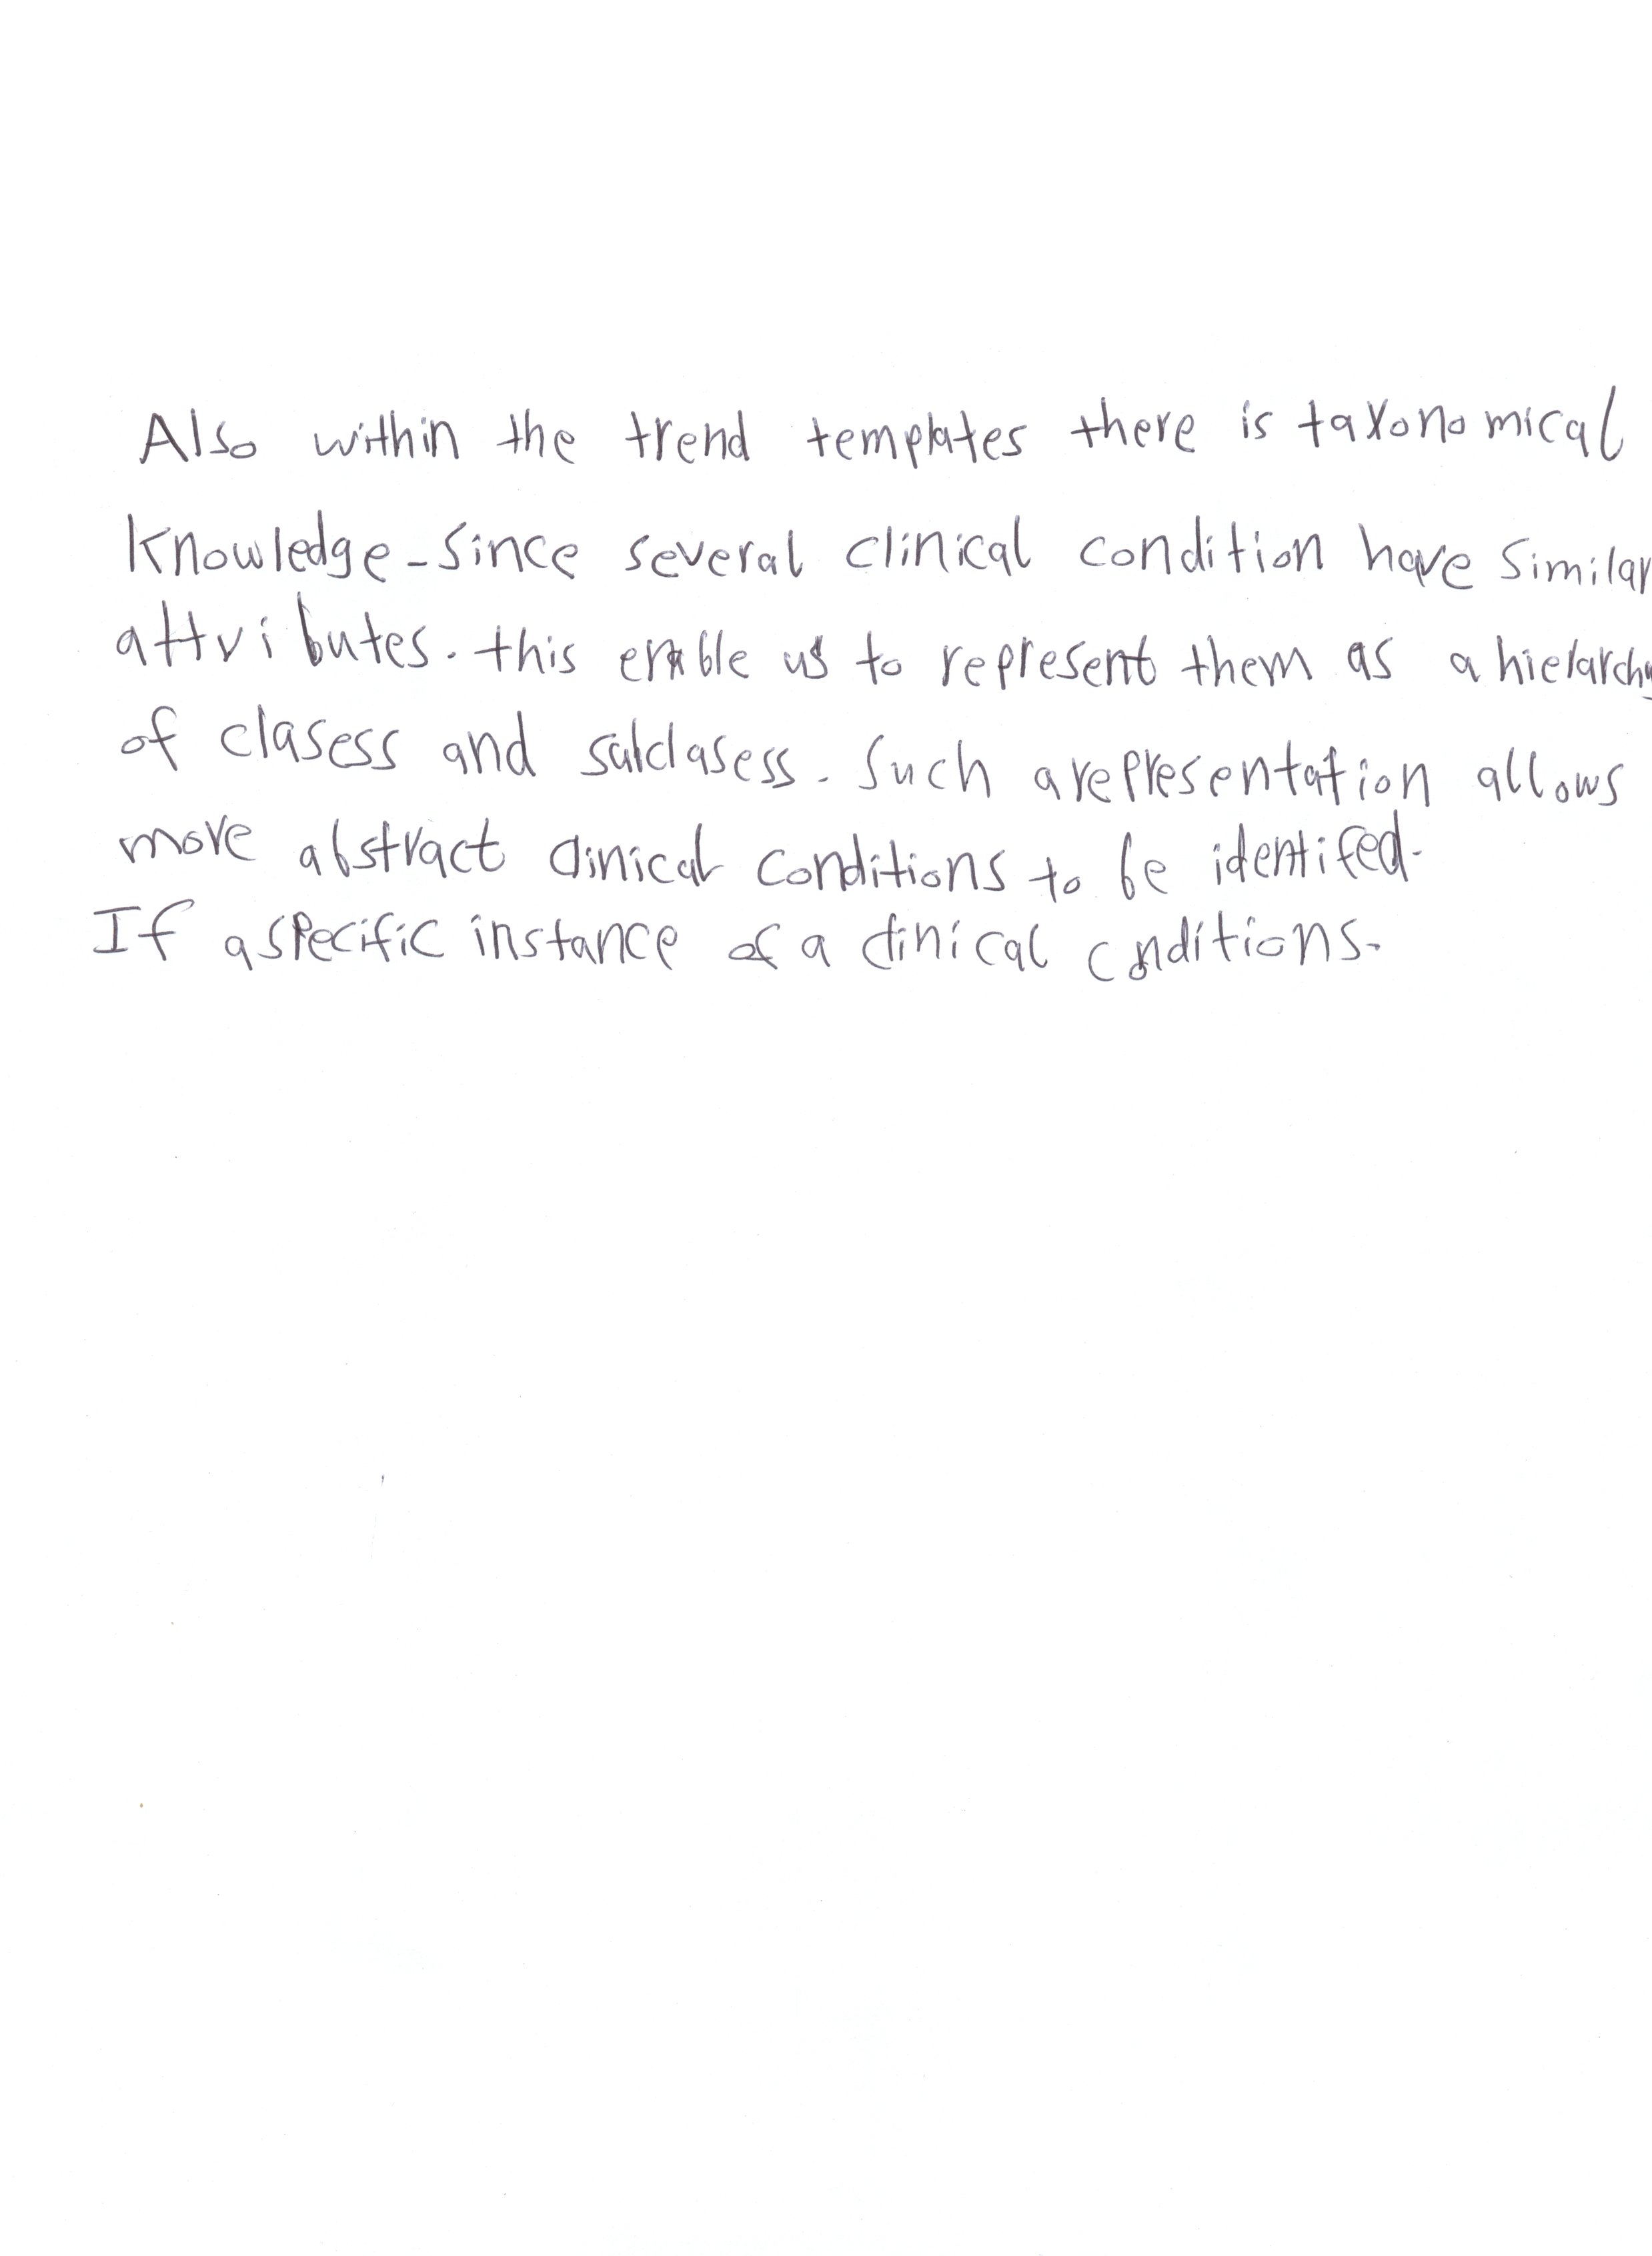 Also within the trend templates there is taxonomical
knowledge-since several clinical condition have similar
attributes. this enable us to represent them as a hierarchy
of clasess and subclasess. Such a representation allows
more abstract clinical conditions to be identifed.
If a specific instance of a clinical conditions.